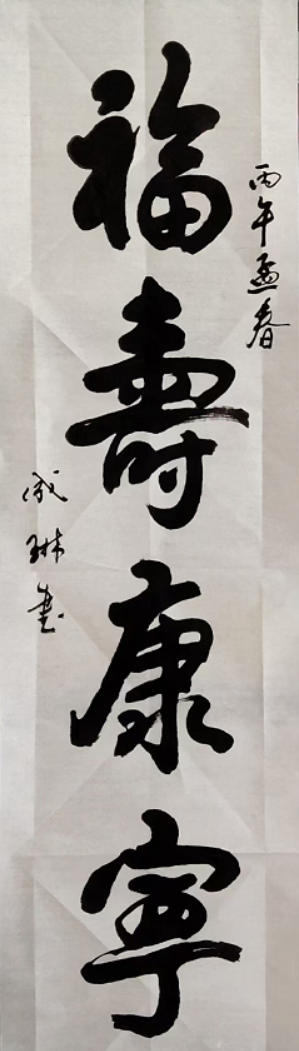 丙午孟春
福壽康寧
成琳書